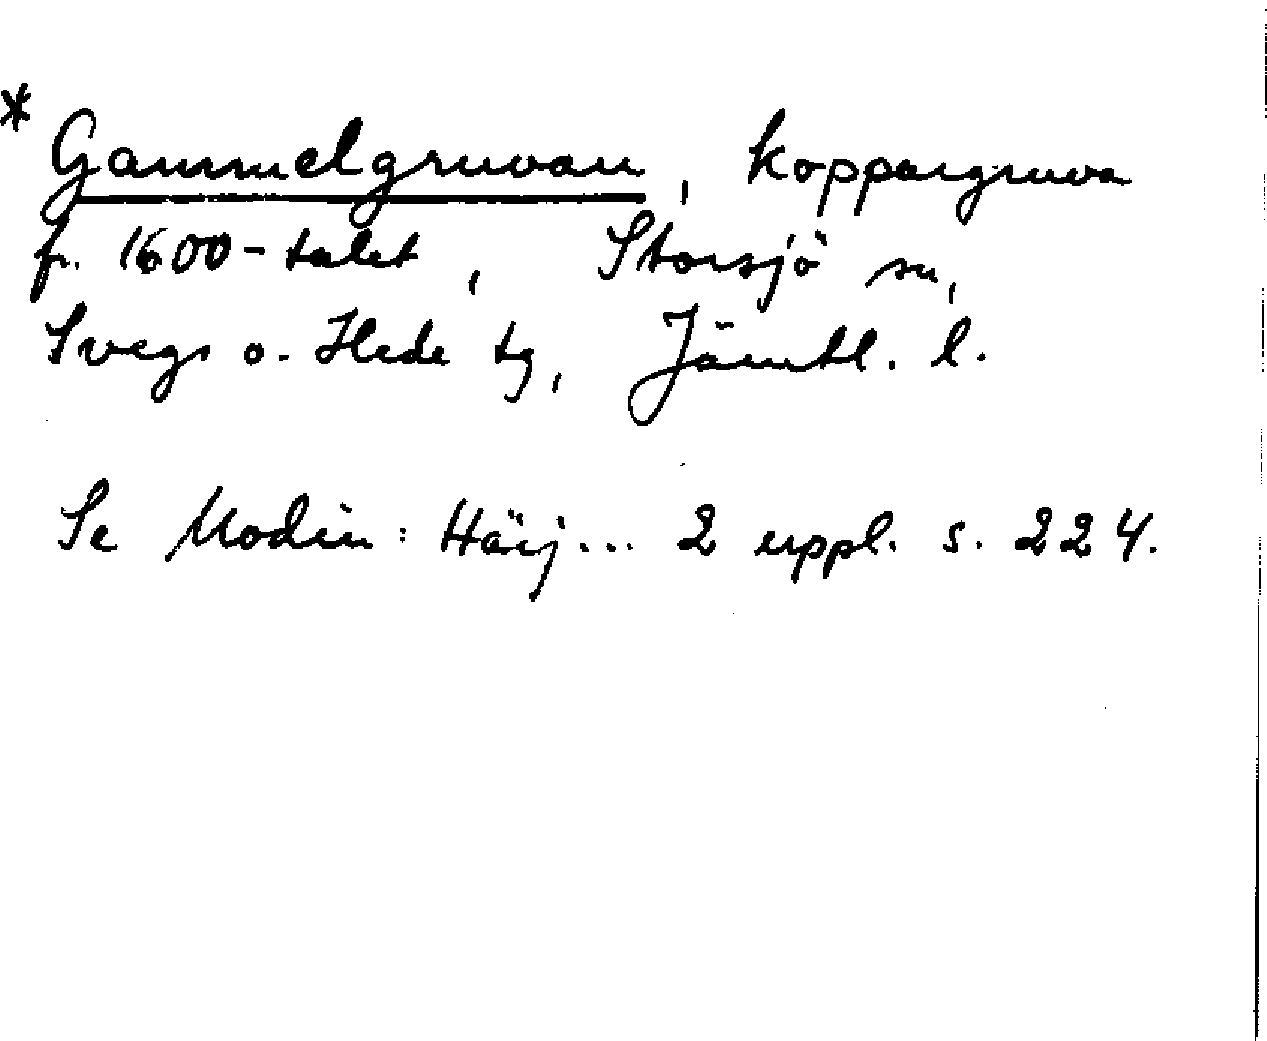 * Gammelgruvan, koppargruva
fr. 1600-talet, Storsjö sn,
Svegs o. Hede tg, Jämtl. l.
Se Modin: Härj... 2 uppl. s. 224.